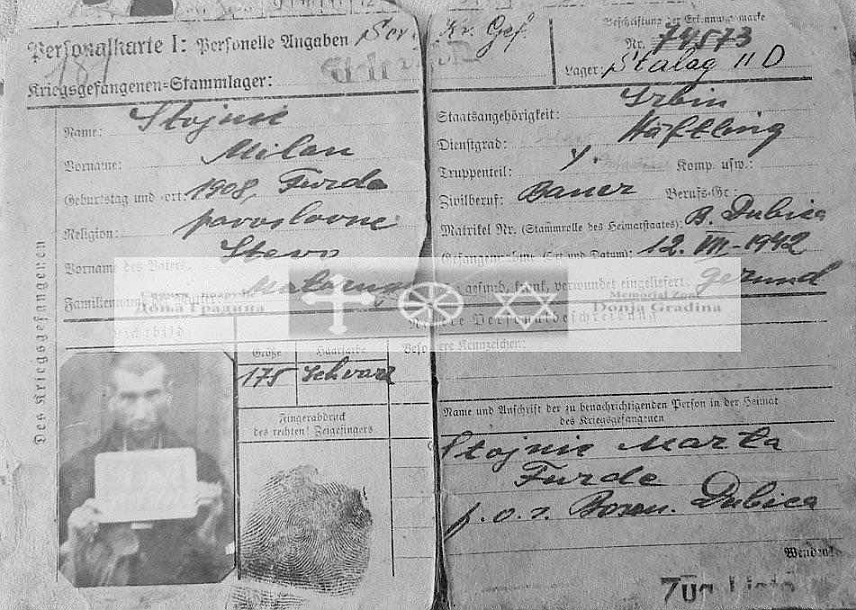 Personalkarte I: Personelle Angaben
Kriegsgefangenen=Stammlager:
Beschriftung der Erkennungsmarke
Nr. 74573
Lager: Stalag II D
Des Kriegsgefangenen
Name: Stojnic
Vorname: Milan
Geburtstag und -ort: 1908, Furda
Religion: pravoslavne
Vorname des Vaters: Stevo
Familienname der Mutter:
Staatsangehörigkeit: Srbin
Dienstgrad: Häftling
Truppenteil: Komp. usw.:
Zivilberuf: Bauer Berufs-Gr.:
Matrikel Nr. (Stammrolle des Heimatstaates): B. Dubica
Gefangennahme (Ort und Datum): 12. VIII-1942
gesund, krank, verwundet eingeliefert: gesund
Доња Градина
Memorial Zone
Donja Gradina
Lichtbild
Nähere Personalbeschreibung
Größe Haarfarbe Besondere Kennzeichen:
175 Schvarz
Fingerabdruck
des rechten! Zeigefingers
Name und Anschrift der zu benachrichtigenden Person in der Heimat
des Kriegsgefangenen
Stojnic Marta
Furde
Bosan. Dubica
Wenden!